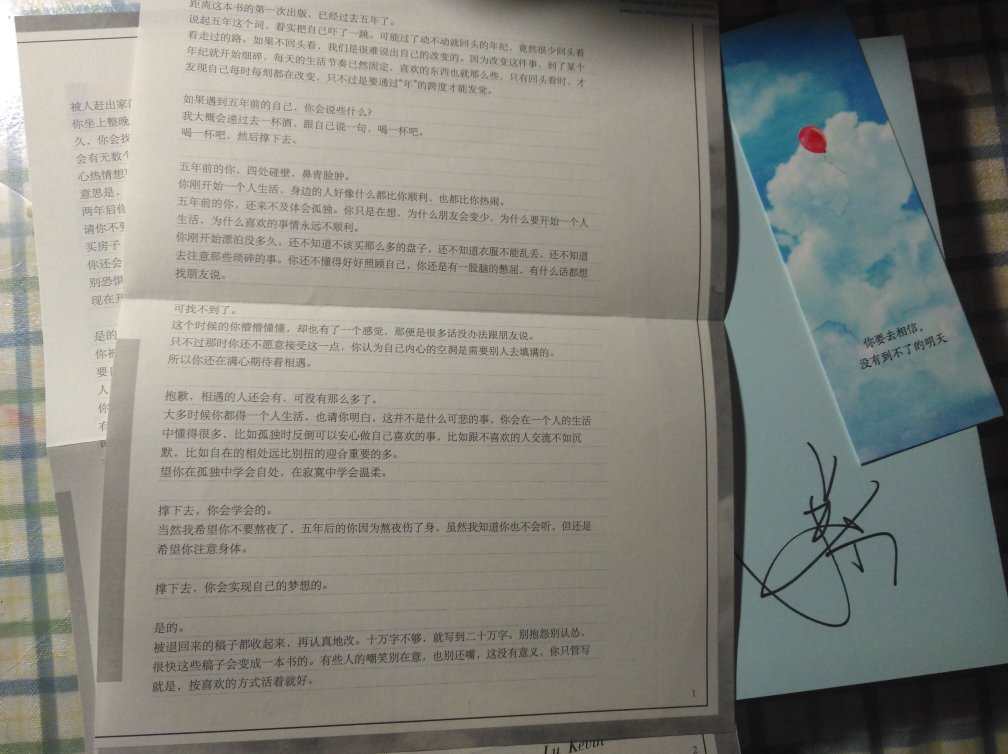 距离这本书的第一次出版，已经过去五年了。
说起五年这个词，着实把自己吓了一跳。可能过了动不动就回头的年纪，竟然很少回头看
看走过的路。如果不回头看，我们是很难说出自己的改变的。因为改变这件事，到了某个
年纪就开始细碎，每天的生活节奏已然固定，喜欢的东西也就那么些，只有回头看时，才
发现自己每时每刻都在改变，只不过是要通过“年”的跨度才能发觉。
如果遇到五年前的自己，你会说些什么？
我大概会递过去一杯酒，跟自己说一句，喝一杯吧。
喝一杯吧，然后撑下去。
五年前的你，四处碰壁，鼻青脸肿。
你刚开始一个人生活，身边的人好像什么都比你顺利，也都比你热闹。
五年前的你，还来不及体会孤独。你只是在想，为什么朋友会变少，为什么要开始一个人
生活，为什么喜欢的事情永远不顺利。
你刚开始漂泊没多久，还不知道不该买那么多的盘子，还不知道衣服不能乱丢，还不知道
去注意那些琐碎的事。你还不懂得好好照顾自己，你还是有一股脑的憋屈，有什么话都想
找朋友说。
可找不到了。
这个时候的你懵懵懂懂，却也有了一个感觉，那便是很多话没办法跟朋友说。
只不过那时你还不愿意接受这一点，你认为自己内心的空洞是需要别人去填满的。
所以你还在满心期待着相遇。
抱歉，相遇的人还会有，可没有那么多了。
大多时候你都得一个人生活，也请你明白，这并不是什么可悲的事，你会在一个人的生活
中懂得很多，比如孤独时反倒可以安心做自己喜欢的事，比如跟不喜欢的人交流不如沉
默，比如自在的相处远比别扭的迎合重要的多。
望你在孤独中学会自处，在寂寞中学会温柔。
撑下去，你会学会的。
当然我希望你不要熬夜了，五年后的你因为熬夜伤了身，虽然我知道你也不会听，但还是
希望你注意身体。
撑下去，你会实现自己的梦想的。
是的。
被退回来的稿子都收起来，再认真地改。十万字不够，就写到二十万字。别抱怨别认怂，
很快这些稿子会变成一本书的。有些人的嘲笑别在意，也别还嘴，这没有意义，你只管写
就是，按喜欢的方式活着就好。
1
被人赶出家
你坐上整晚
久，你会找
会有无数个
心热情想
意思是，
两年后你
请你不要
买房子
你还会
别恐惧
现在开
是的
你被
要
人
你
有
Lu Kevin
2
你要去相信，
没有到不了的明天